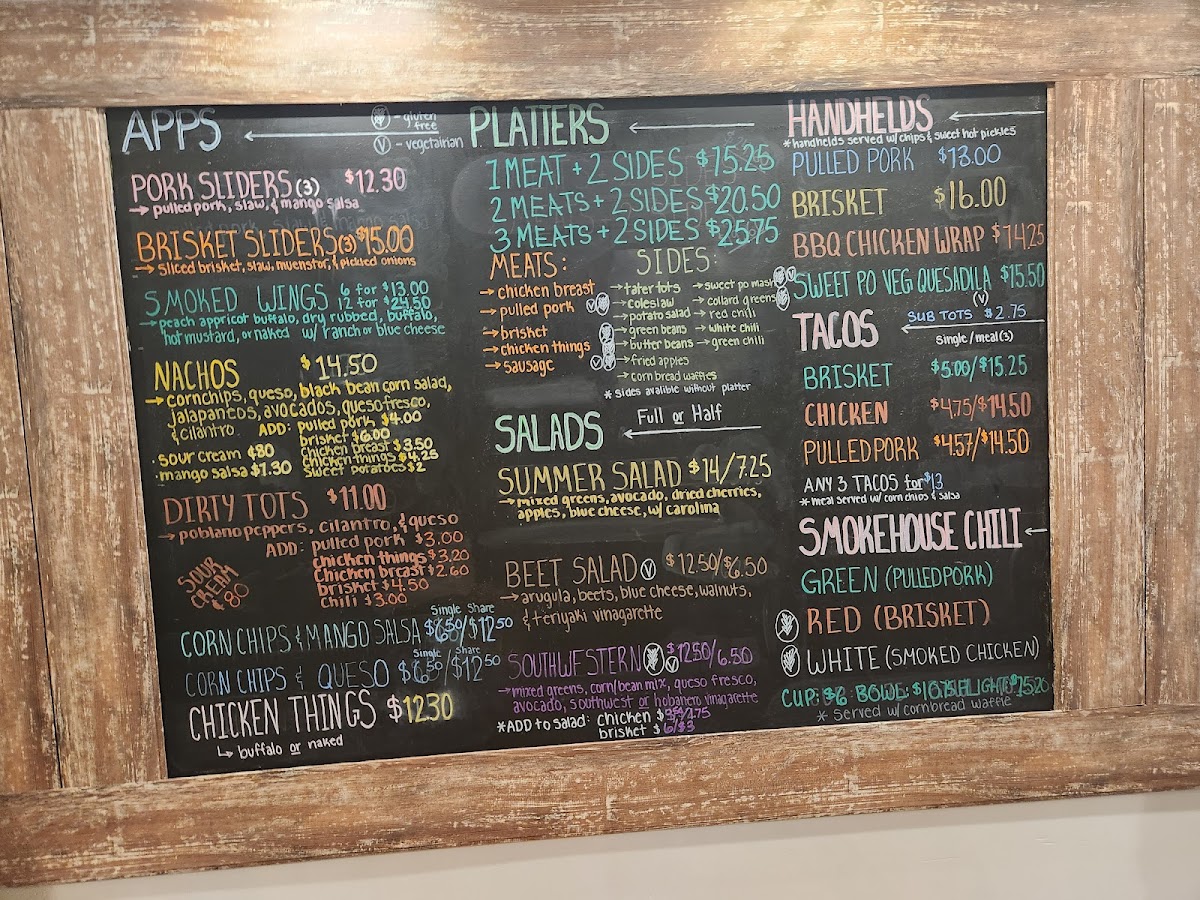 APPS
- gluten free
V - vegetairian
PORK SLIDERS (3) $12.30
→ pulled pork, slaw, & mango salsa
BRISKET SLIDERS (3) $15.00
→ sliced brisket, slaw, muenster, & pickled onions
SMOKED WINGS 6 for $13.00
12 for $24.50
→ peach appricot buffalo, dry rubbed, buffalo,
hot mustard, or naked w/ ranch or blue cheese
NACHOS $14.50
→ cornchips, queso, black bean corn salad,
jalapaneos, avocados, queso fresco,
& cilantro. ADD: pulled pork $4.00
brisket $6.00
chicken breast $3.50
chicken things $4.25
sweet potatoes $2
· sour cream €80
· mango salsa $1.30
DIRTY TOTS $11.00
→ poblano peppers, cilantro, & queso
ADD: pulled pork $3.00
chicken things $3.20
chicken breast $2.60
brisket $4.50
chili $3.00
SOUR
CREAM
¢80
Single Share
CORN CHIPS & MANGO SALSA $6.50/$12.50
Single Share
CORN CHIPS & QUESO $6.50/$12.50
CHICKEN THINGS $12.30
↳ buffalo or naked
PLATTERS
1 MEAT + 2 SIDES $15.25
2 MEATS + 2 SIDES $20.50
3 MEATS + 2 SIDES $25.75
MEATS:
→ chicken breast
→ pulled pork
→ brisket
→ chicken things
→ sausage
SIDES:
→ tater tots → sweet po mash
→ coleslaw → collard greens
→ potato salad → red chili
→ green beans → white chili
→ butter beans → green chili
→ fried apples
→ corn bread waffles
* sides avalible without platter
SALADS Full or Half
SUMMER SALAD $14/7.25
→ mixed greens, avocado, dried cherries,
apples, blue cheese, w/ carolina
BEET SALAD V $12.50/$6.50
→ arugula, beets, blue cheese, walnuts,
& teriyaki vinagarette
SOUTHWESTERN V $12.50/6.50
→ mixed greens, corn/bean mix, queso fresco,
avocado, southwest or habanero vinagarette
*ADD to salad: chicken
brisket $6/$3
HANDHELDS
* handhelds served w/ chips & sweet hot pickles
PULLED PORK $13.00
BRISKET $16.00
BBQ CHICKEN WRAP $14.25
SWEET PO VEG QUESADILA $15.50
(V) SUB TOTS $2.75
TACOS
Single/meal(3)
BRISKET $5.00/$15.25
CHICKEN $4.75/$14.50
PULLED PORK $4.57/$14.50
ANY 3 TACOS for $13
* meal served w/ corn chips & salsa
SMOKEHOUSE CHILI
GREEN (PULLED PORK)
RED (BRISKET)
WHITE (SMOKED CHICKEN)
CUP: $6 BOWL: FLIGHT:
* served w/ cornbread waffle